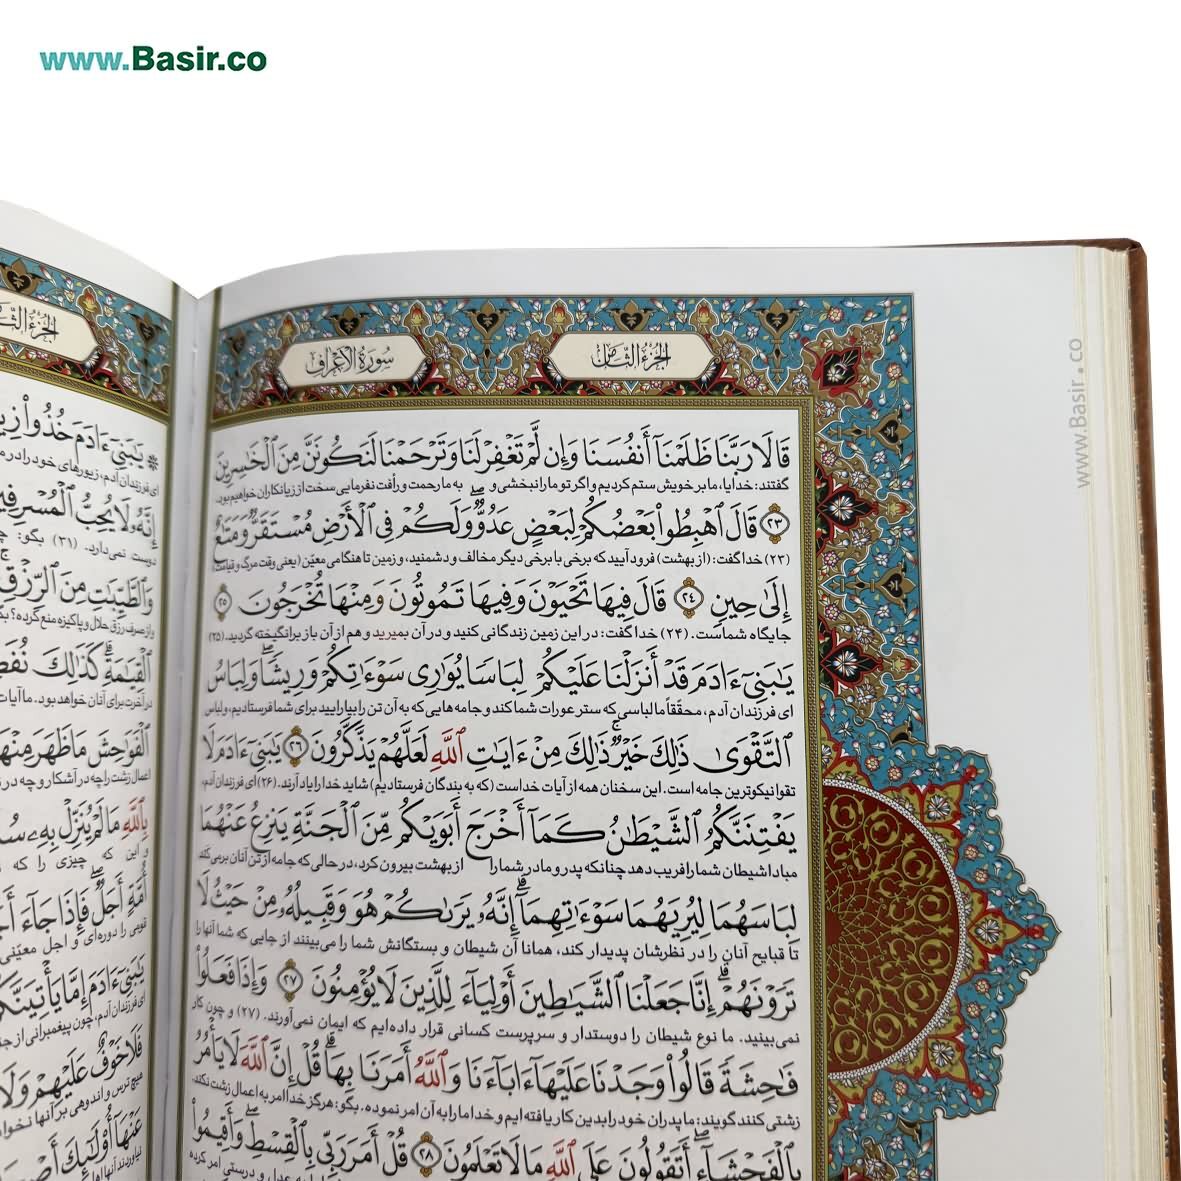 www.Basir.co
الجزء الثامن
سورة الأعراف
قَالَا رَبَّنَا ظَلَمْنَآ أَنفُسَنَا وَإِن لَّمْ تَغْفِرْ لَنَا وَتَرْحَمْنَا لَنَكُونَنَّ مِنَ ٱلْخَٰسِرِينَ
گفتند: خدایا، ما بر خویش ستم کردیم و اگر تو ما را نبخشی و به ما رحمت و رأفت نفرمایی سخت از زیانکاران خواهیم بود.
﴿٢٣﴾ قَالَ ٱهْبِطُوا۟ بَعْضُكُمْ لِبَعْضٍ عَدُوٌّ ۖ وَلَكُمْ فِى ٱلْأَرْضِ مُسْتَقَرٌّ وَمَتَٰعٌ
(۲۳) خدا گفت: (از بهشت) فرود آیید که برخی با برخی دیگر مخالف و دشمنید، و زمین تا هنگامی معیّن (یعنی وقت مرگ و قیامت)
إِلَىٰ حِينٍ ﴿٢٤﴾ قَالَ فِيهَا تَحْيَوْنَ وَفِيهَا تَمُوتُونَ وَمِنْهَا تُخْرَجُونَ ﴿٢٥﴾
جایگاه شماست. (۲۴) خدا گفت: در این زمین زندگانی کنید و در آن بمیرید و هم از آن باز برانگیخته گردید. (۲۵)
يَٰبَنِىٓ ءَادَمَ قَدْ أَنزَلْنَا عَلَيْكُمْ لِبَاسًا يُوَٰرِى سَوْءَٰتِكُمْ وَرِيشًا ۖ وَلِبَاسُ
ای فرزندان آدم، محقّقاً ما لباسی که ستر عورات شما کند و جامه هایی که به آن تن را بیارایید برای شما فرستادیم، و لباس
ٱلتَّقْوَىٰ ذَٰلِكَ خَيْرٌ ۚ ذَٰلِكَ مِنْ ءَايَٰتِ ٱللَّهِ لَعَلَّهُمْ يَذَّكَّرُونَ ﴿٢٦﴾ يَٰبَنِىٓ ءَادَمَ لَا
تقوا نیکوترین جامه است. این سخنان همه از آیات خداست (که به بندگان فرستادیم) شاید خدا را یاد آرند. (۲۶) ای فرزندان آدم،
يَفْتِنَنَّكُمُ ٱلشَّيْطَٰنُ كَمَآ أَخْرَجَ أَبَوَيْكُم مِّنَ ٱلْجَنَّةِ يَنزِعُ عَنْهُمَا
مبادا شیطان شما را فریب دهد چنانکه پدر و مادر شما را از بهشت بیرون کرد، در حالی که جامه از تن آنان بر می‌کند
لِبَاسَهُمَا لِيُرِيَهُمَا سَوْءَٰتِهِمَآ ۗ إِنَّهُۥ يَرَىٰكُمْ هُوَ وَقَبِيلُهُۥ مِنْ حَيْثُ لَا
تا قبایح آنان را در نظرشان پدیدار کند، همانا آن شیطان و بستگانش شما را می‌بینند از جایی که شما آنها را
تَرَوْنَهُمْ ۗ إِنَّا جَعَلْنَا ٱلشَّيَٰطِينَ أَوْلِيَآءَ لِلَّذِينَ لَا يُؤْمِنُونَ ﴿٢٧﴾ وَإِذَا فَعَلُوا۟
نمی‌بینید. ما نوع شیطان را دوستدار و سرپرست کسانی قرار داده‌ایم که ایمان نمی‌آورند. (۲۷) و چون کار
فَٰحِشَةً قَالُوا۟ وَجَدْنَا عَلَيْهَآ ءَابَآءَنَا وَٱللَّهُ أَمَرَنَا بِهَا ۗ قُلْ إِنَّ ٱللَّهَ لَا يَأْمُرُ
زشتی کنند گویند: ما پدران خود را بدین کار یافته ایم و خدا ما را به آن امر نموده. بگو: هرگز خدا امر به اعمال زشت نکند.
بِٱلْفَحْشَآءِ ۖ أَتَقُولُونَ عَلَى ٱللَّهِ مَا لَا تَعْلَمُونَ ﴿٢٨﴾ قُلْ أَمَرَ رَبِّى بِٱلْقِسْطِ ۖ وَأَقِيمُوا۟
به عدل و درستی امر کرده
www.Basir.co
يَٰبَنِىٓ ءَادَمَ خُذُوا۟
ای فرزندان آدم، زیورهای خود را در
إِنَّهُۥ لَا يُحِبُّ ٱلْمُسْرِفِينَ
دوست نمی‌دارد. (۳۱) بگو:
وَٱلطَّيِّبَٰتِ مِنَ ٱلرِّزْقِ
و از صرف رزق حلال و پاکیزه منع کرده؟
ٱلْقِيَٰمَةِ ۗ كَذَٰلِكَ
در آخرت برای آنان خواهد بود. ما آیات
ٱلْفَوَٰحِشَ مَا ظَهَرَ مِنْهَا
اعمال زشت را چه در آشکار و چه در
بِٱللَّهِ مَا لَمْ يُنَزِّلْ بِهِۦ
و این که چیزی را که
أُمَّةٍ أَجَلٌ ۖ فَإِذَا جَآءَ
قومی را دوره‌ای و اجل معیّنی
يَٰبَنِىٓ ءَادَمَ إِمَّا يَأْتِيَنَّكُمْ
ای فرزندان آدم، چون پیغمبرانی از
فَلَا خَوْفٌ عَلَيْهِمْ وَلَا
هیچ ترس و اندوهی بر آنها
عَنْهَآ أُو۟لَٰٓئِكَ